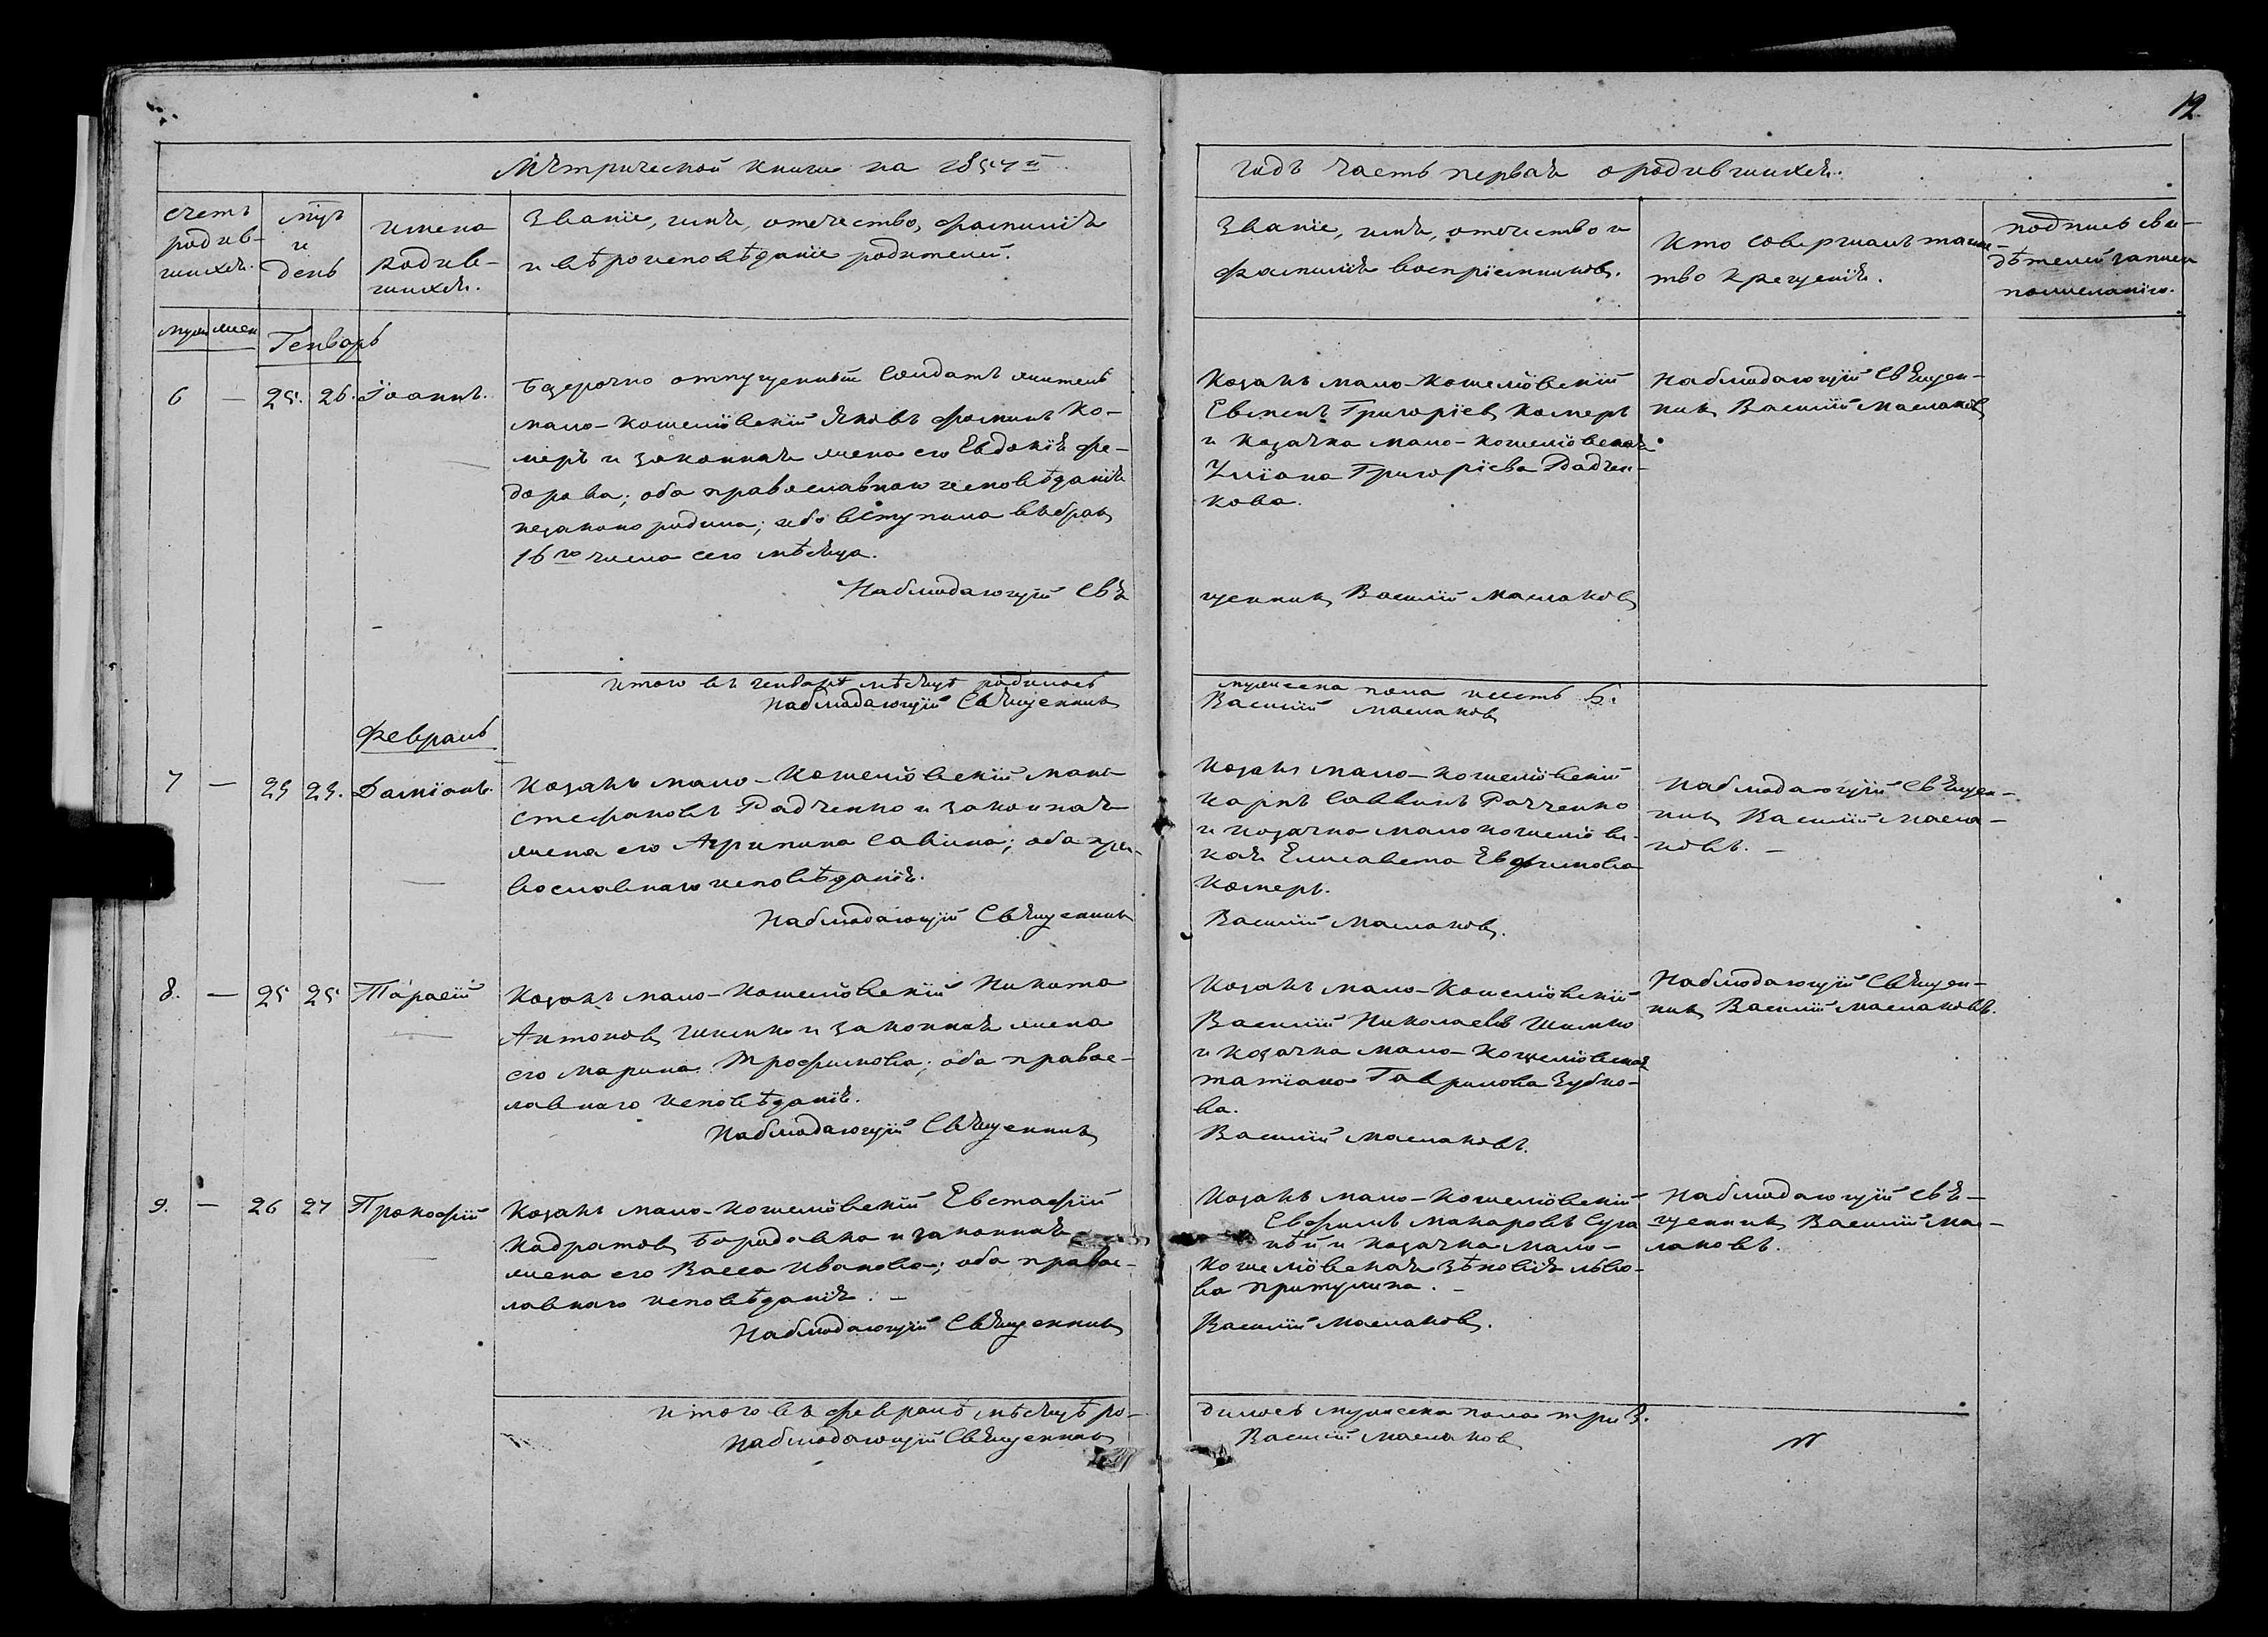 12
Метрической книги на 1857й
годъ часть первая о родившихся.
Счетъ родив-
шихся.
мцъ
и
день
имена
родив-
шихся.
Званіе, имя, отечество, фамилія
и вѣроисповѣданіе родителей.
Званіе, имя, отечество и
фамилія воспріемниковъ.
Кто совершалъ таин-
тво крещенія.
подпись сви-
дѣтелей записи
по желанію.
муж жен
Генварь
6 — 25. 26. Іоаннъ.
Бсерочно отпущенный солдатъ житель
мало-кошелювскій Яковъ Фоминъ Ко-
меръ и законная жена его Евдокія Фе-
дорова; оба православнаго исповѣданія
незаконо родила; ибо вступила въ бракъ
16го числа сего мѣсяца.
Наблюдающій Свя
Козакъ мало-кошелювскій
Евменъ Григоріевъ Комеръ
и козачка мало-кошелювская
Уліана Григоріева Радчен-
кова.
щенникъ Василій Маслаковъ
Наблюдающій Священ-
никъ Василій Маслаковъ
итого въ генварѣ мѣсяцѣ родилось
Наблюдающій Священникъ
мужеска пола шесть 6.
Василій Маслаковъ
Февраль
7 — 25 25. Даміанъ.
Козакъ мало-кошелювскій
Стефановъ Радченко и законная
жена его Агрипина Савина; оба пра-
вославнаго исповѣданія.
Наблюдающій Священникъ
Козакъ мало-кошелювскій
Карпъ Саввинъ Радченко
и козачка малокошелювс-
кая Елисавета Евфимова
Комеръ.
Василій Маслаковъ.
Наблюдающій Священ-
никъ Василій Масла-
ковъ. —
8. — 25 25 Тарасій
Козакъ мало-кошелювскій Никита
Антоновъ Шимко и законная жена
его Марина Трофимова; оба правос-
лавнаго исповѣданія.
Наблюдающій Священникъ
Козакъ мало-кошелювскій
Василій Николаевъ Шимко
и козачка мало-кошелювская
Татіана Гаврилова Зубко-
ва.
Василій Маслаковъ.
Наблюдающій Священ-
никъ Василій Маслаковъ.
9. — 26 27 Прокофій
Козакъ мало-кошелювскій Евстафій
Кадратовъ Бородавка и законная
жена его Васса Иванова; оба правос-
лавнаго исповѣданія. —
Наблюдающій Священникъ
Козакъ мало-кошелювскій
Евфимъ Макаровъ
и козачка мало-
кошелювская Зѣновія Льво-
ва Притулина. —
Василій Маслаковъ.
Наблюдающій Свя-
щенникъ Василій Мас-
лаковъ.
итого въ февралѣ мѣсяцѣ ро-
Наблюдающій Священникъ
дилось мужеска пола три 3.
Василій Маслаковъ